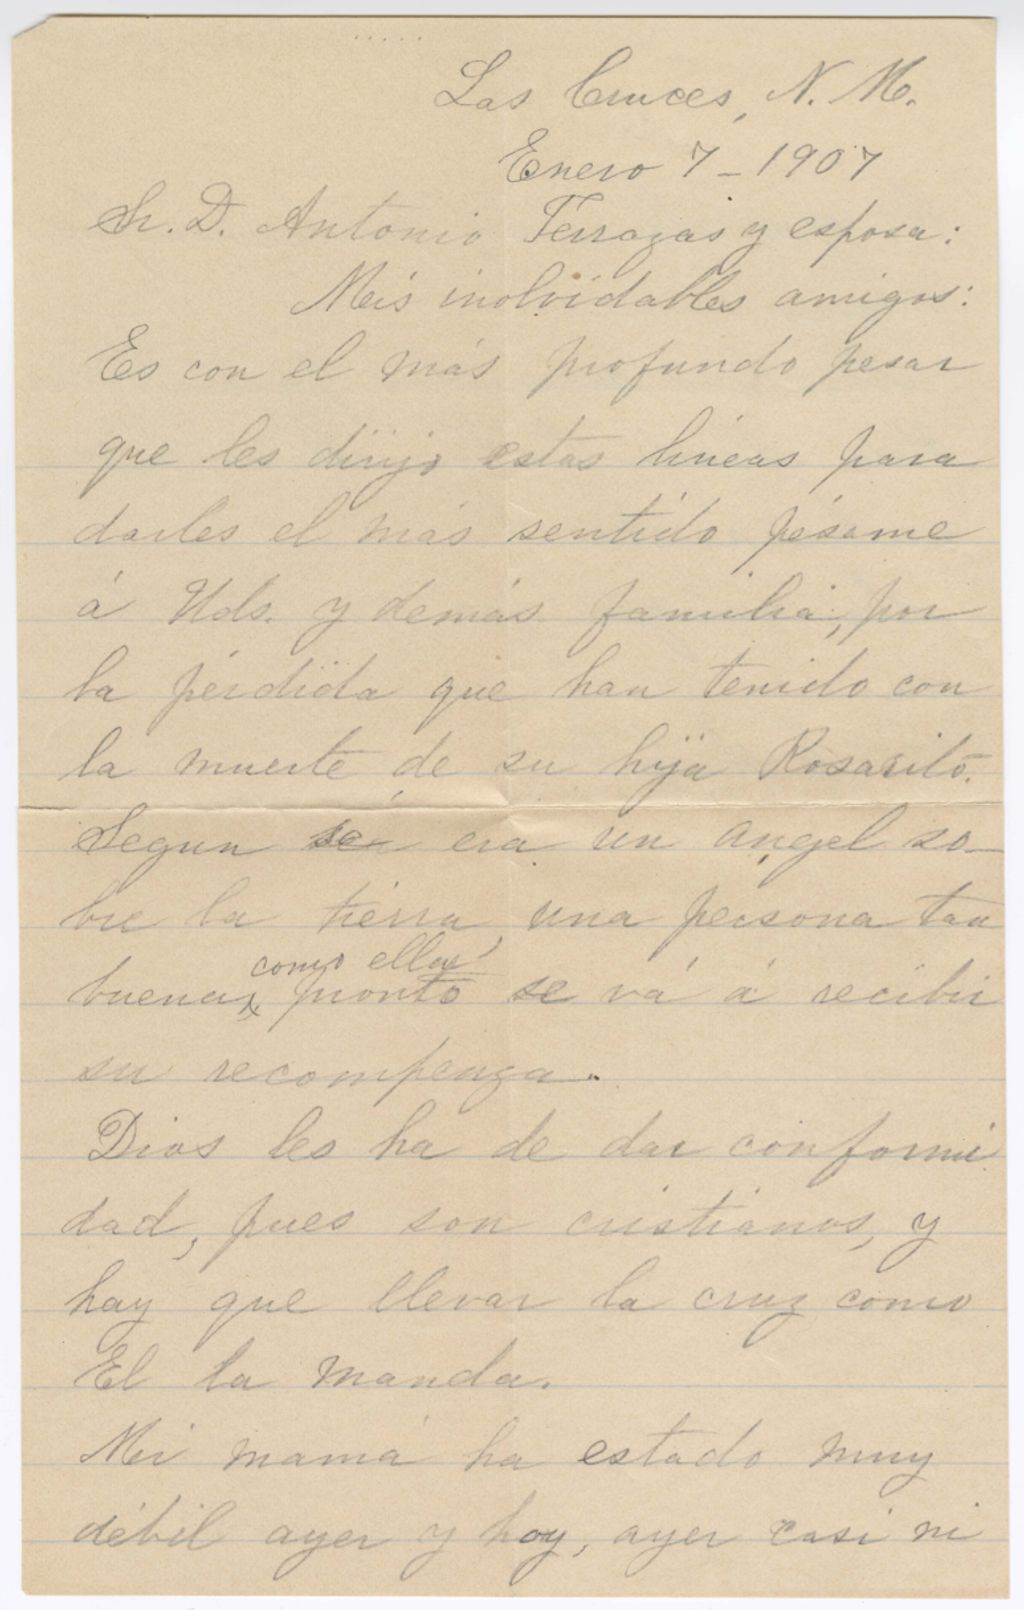 Las Cruces, N. M.
Enero 7 - 1907
Sr. D. Antonio Terrazas y esposa:
Mis inolvidables amigos:
Es con el más profundo pesar
que les dirijo estas lineas para
darles el más sentido pésame
á Uds. y demás familia, por
la pérdida que han tenido con
la muerte de su hija Rosarito.
Segun sé era un angel so-
bre la tierra, una persona tan
como ella
buena, pronto se vá á recibir
su recompenza.
Dios les ha de dar conformi
dad, pues son cristianos, y
hay que llevar la cruz como
El la manda.
Mi mamá ha estado muy
débil ayer y hoy, ayer casi ni